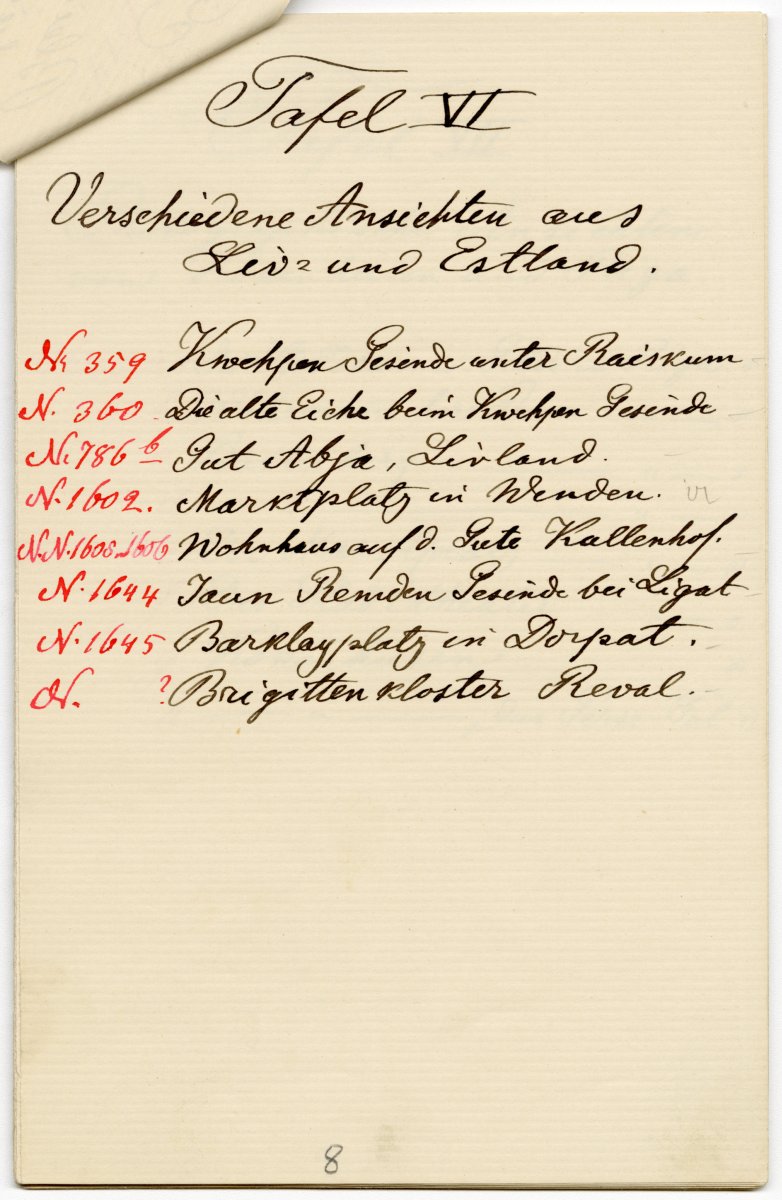 Tafel VI
Verschiedene Ansichten aus
Liv= und Estland.
Nr 359 Kwehpen Gesinde unter Raiskum
N. 360 Die alte Eiche beim Kwehpen Gesinde
Nr 786 b Gut Abja, Livland.
N. 1602. Marktplatz in Wenden.
N.N. 1605-1606 Wohnhaus auf d. Gute Kallenhof.
N. 1644 Jaun Remden Gesinde bei Ligat
N. 1645 Barklayplatz in Dorpat.
N. ? Brigittenkloster Reval.
8